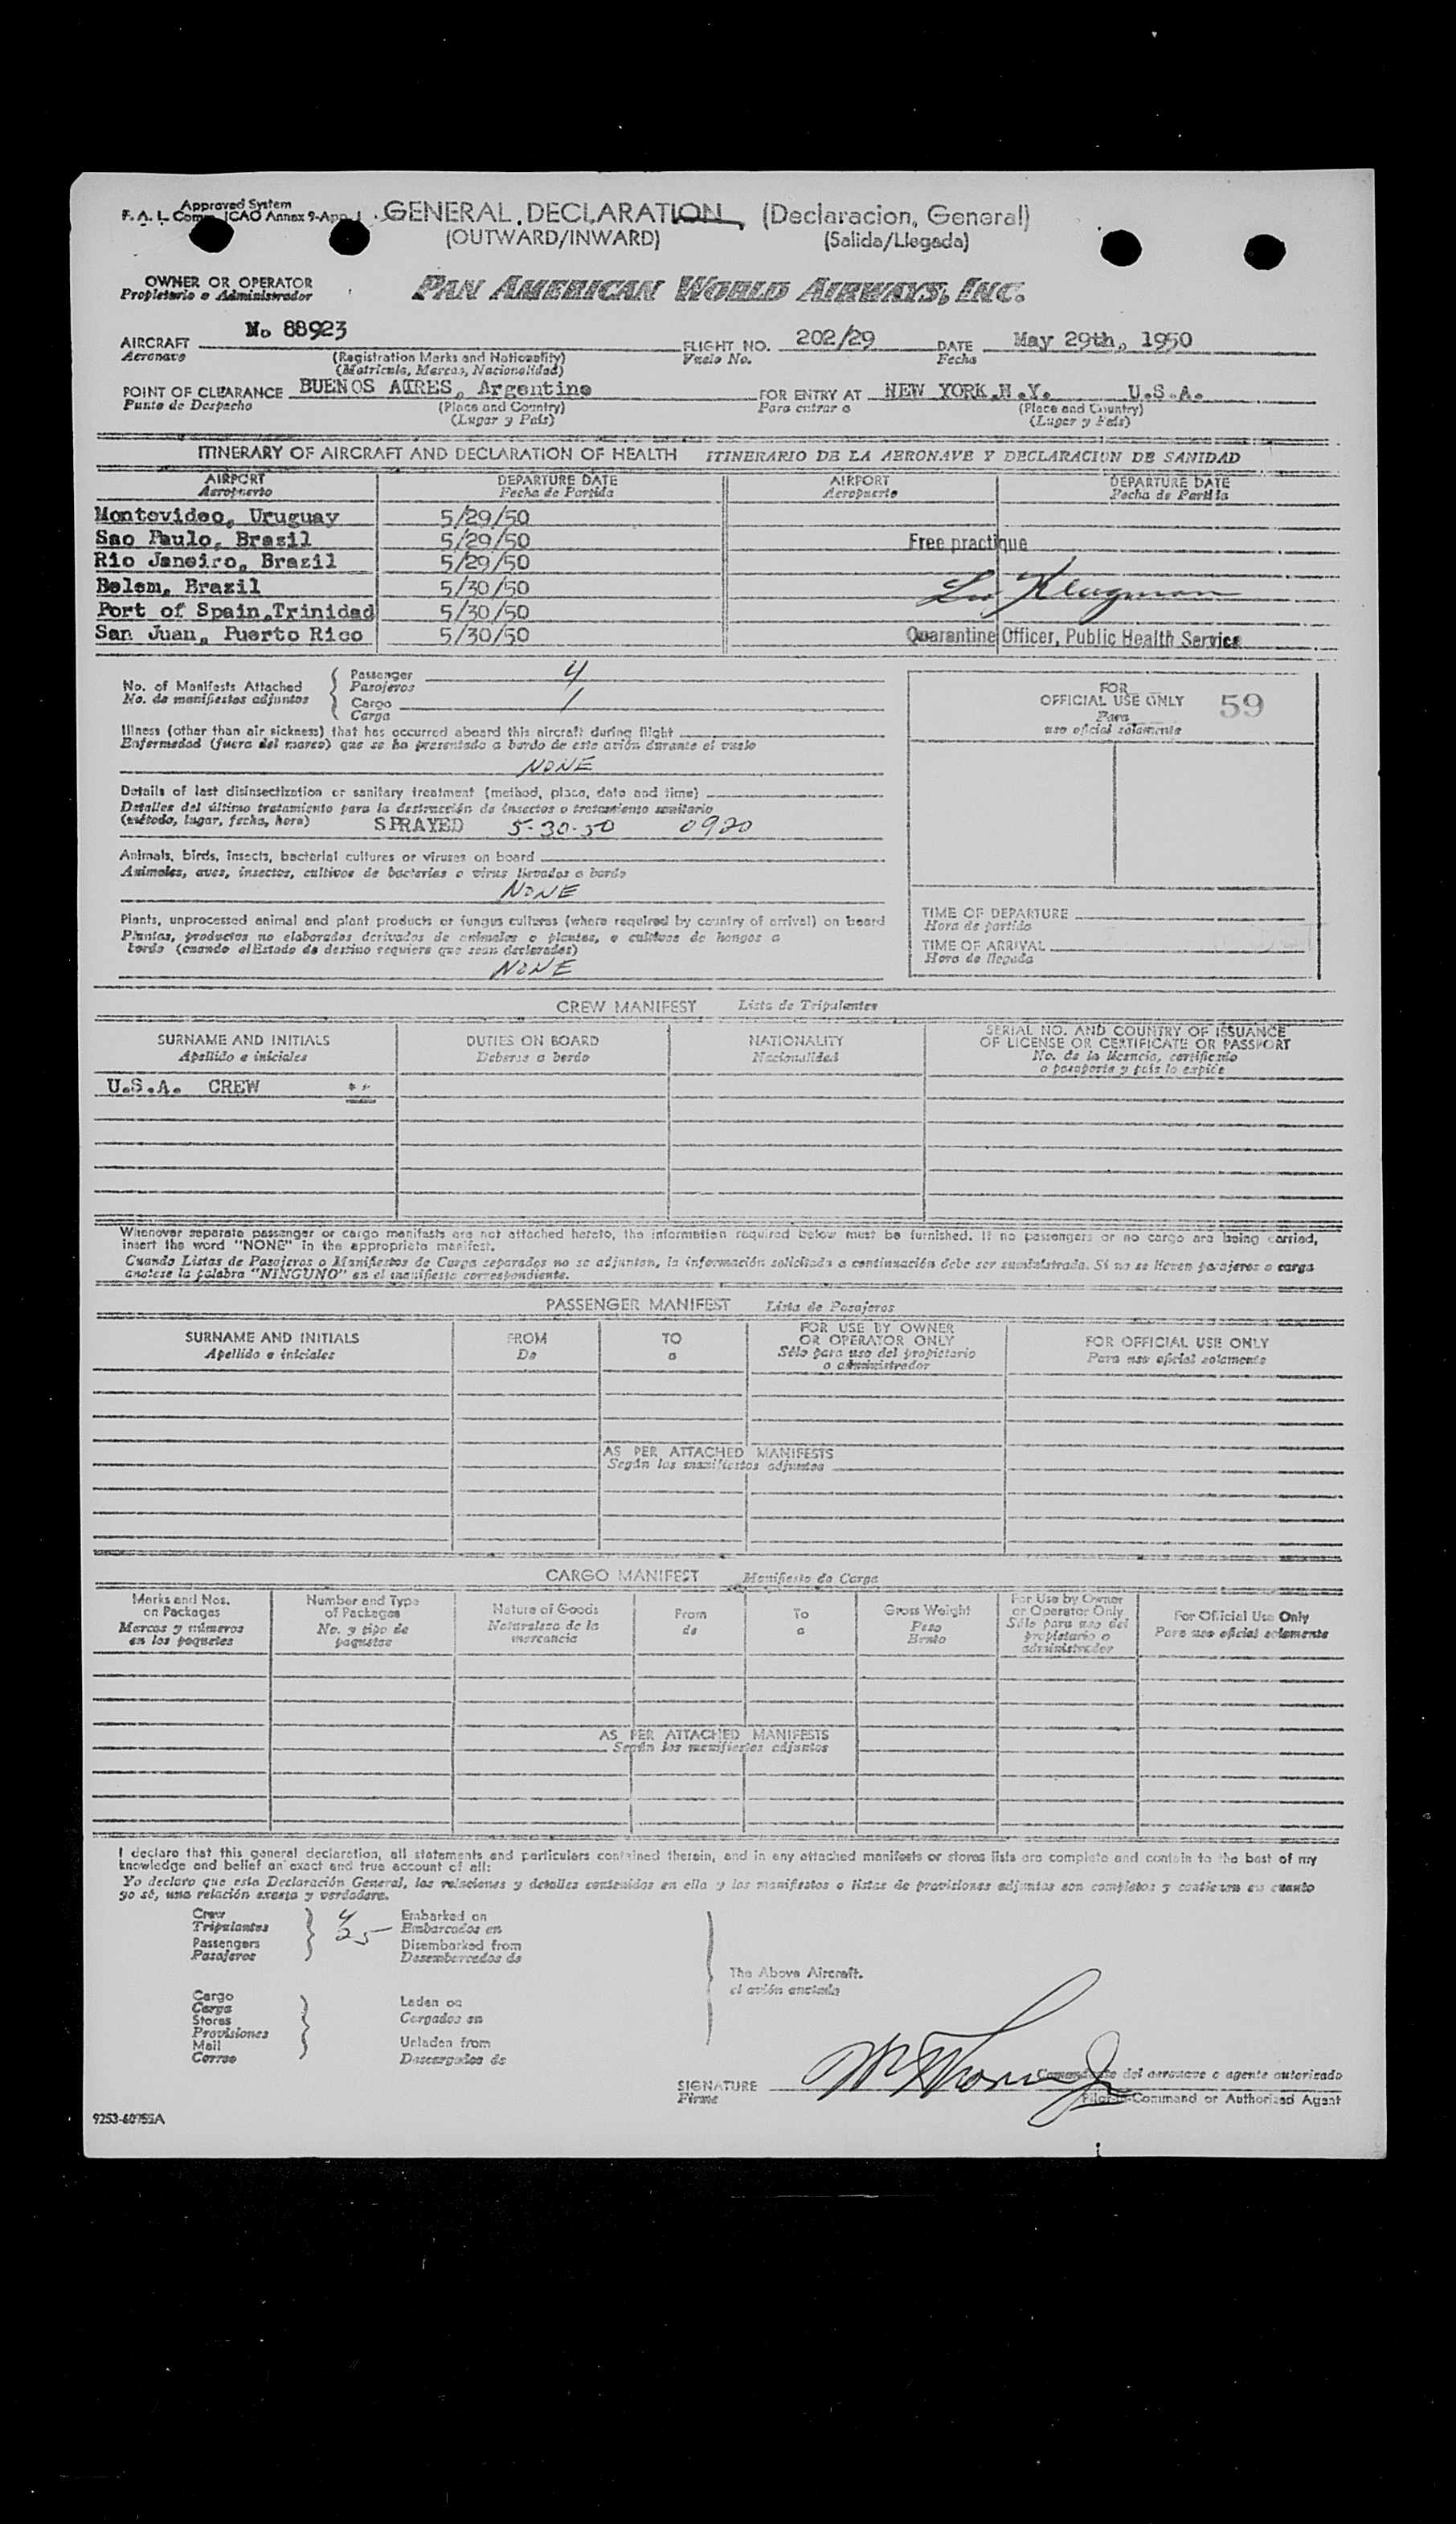 Approved System
F. A. L. Comm. ICAO Annex 9-App. 1
GENERAL DECLARATION (Declaracion, General)
(OUTWARD/INWARD) (Salida/Llegada)
OWNER OR OPERATOR
Propietario o Administrador
PAN AMERICAN WORLD AIRWAYS, INC.
AIRCRAFT No 88923 FLIGHT NO. 202/29 DATE May 29th, 1950
Aeronave (Registration Marks and Nationality) Vuelo No. Fecha
(Matricula, Marcas, Nacionalidad)
POINT OF CLEARANCE BUENOS AIRES, Argentina FOR ENTRY AT NEW YORK.N.Y. U.S.A.
Punto de Despacho (Place and Country) Para entrar a (Place and Country)
(Lugar y Pais) (Lugar y Pais)
ITINERARY OF AIRCRAFT AND DECLARATION OF HEALTH ITINERARIO DE LA AERONAVE Y DECLARACION DE SANIDAD
AIRPORT DEPARTURE DATE AIRPORT DEPARTURE DATE
Aeropuerto Fecha de Partida Aeropuerto Fecha de Partida
Montevideo, Uruguay 5/29/50
Sao Paulo, Brasil 5/29/50 Free practique
Rio Janeiro, Brazil 5/29/50
Belem, Brazil 5/30/50 Leo Klugman
Port of Spain,Trinidad 5/30/50
San Juan, Puerto Rico 5/30/50 Quarantine Officer, Public Health Service
No. of Manifests Attached
No. de manifiestos adjuntos
Passenger 4
Pasajeros
Cargo 1
Carga
FOR
OFFICIAL USE ONLY 59
Para
uso oficial solamente
Illness (other than air sickness) that has occurred aboard this aircraft during flight
Enfermedad (fuera del mareo) que se ha presentado a bordo de este avión durante el vuelo
NONE
Details of last disinsectization or sanitary treatment (method, place, date and time)
Detalles del último tratamiento para la destrucción de insectos o tratamiento sanitario
(método, lugar, fecha, hora) SPRAYED 5-30-50 0920
Animals, birds, insects, bacterial cultures or viruses on board
Animales, aves, insectos, cultivos de bacterias o virus llevados a bordo
NONE
Plants, unprocessed animal and plant products or fungus cultures (where required by country of arrival) on board
Plantas, productos no elaborados derivados de animales o plantas, o cultivos de hongos a
bordo (cuando elEstado de destino requiera que sean declarados)
NONE
TIME OF DEPARTURE
Hora de partida
TIME OF ARRIVAL
Hora de llegada
CREW MANIFEST Lista de Tripulantes
SURNAME AND INITIALS DUTIES ON BOARD NATIONALITY SERIAL NO. AND COUNTRY OF ISSUANCE
Apellido e iniciales Deberes a bordo Nacionalidad OF LICENSE OR CERTIFICATE OR PASSPORT
No. de la licencia, certificado
o pasaporte y pais lo expide
U.S.A. CREW
Whenever separate passenger or cargo manifests are not attached hereto, the information required below must be furnished. If no passengers or no cargo are being carried,
insert the word "NONE" in the appropriate manifest.
Cuando Listas de Pasajeros o Manifiestos de Carga separados no se adjuntan, la información solicitada a continuación debe ser suministrada. Si no se llevan pasajeros o carga
anotese la palabra "NINGUNO" en el manifiesto correspondiente.
PASSENGER MANIFEST Lista de Pasajeros
SURNAME AND INITIALS FROM TO FOR USE BY OWNER FOR OFFICIAL USE ONLY
Apellido e iniciales De a OR OPERATOR ONLY Para uso oficial solamente
Sólo para uso del propietario
o administrador
AS PER ATTACHED MANIFESTS
Según los manifiestos adjuntos
CARGO MANIFEST Manifiesto de Carga
Marks and Nos. Number and Type Nature of Goods From To Gross Weight For Use by Owner For Official Use Only
on Packages of Packages Naturaleza de la de a Peso or Operator Only Para uso oficial solamente
Marcas y números No. y tipo de mercancia Bruto Sólo para uso del
en los paquetes paquetes propietario o
administrador
AS PER ATTACHED MANIFESTS
Según los manifiestos adjuntos
I declare that this general declaration, all statements and particulars contained therein, and in any attached manifests or stores lists are complete and contain to the best of my
knowledge and belief an exact and true account of all:
Yo declaro que esta Declaración General, las relaciones y detalles contenidos en ella y los manifiestos o listas de provisiones adjuntas son completos y contienen en cuanto
yo sé, una relación exacta y verdadera.
Crew 4 Embarked on
Tripulantes 25 Embarcados en
Passengers Disembarked from
Pasajeros Desembarcados de
The Above Aircraft.
el avión anotado
Cargo Laden on
Carga Cargados en
Stores
Provisiones
Mail Unladen from
Correo Descargados de
Comandante del aeronave o agente autorizado
SIGNATURE
Firma Pilot-in-Command or Authorized Agent
9253-60755A